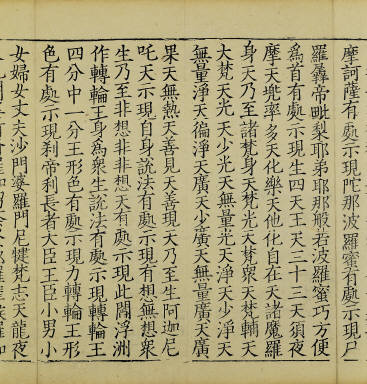 摩訶薩有處示現陀那波羅蜜有處示現尸
羅羼帝毗梨耶弟耶那般若波羅蜜巧方便
為首有處示現生四天王天三十三天須夜
摩天兜率多天化樂天他化自在天諸魔羅
身天乃至諸梵身天梵光天梵衆天梵輔天
大梵天光天少光天無量光天淨天少淨天
無量淨天徧淨天廣天少廣天無量廣天廣
果天無熱天善見天善現天乃至生阿迦尼
吒天示現自身說法有處示現無想無想衆
生乃至非想非非想天有處示現此閻浮洲
作轉輪王身為衆生說法有處示現轉輪王
四分中一分王形色有處示現力轉輪王形
色有處示現刹帝利長者大臣王臣小男小
女婦女丈夫沙門婆羅門尼犍梵志天龍夜